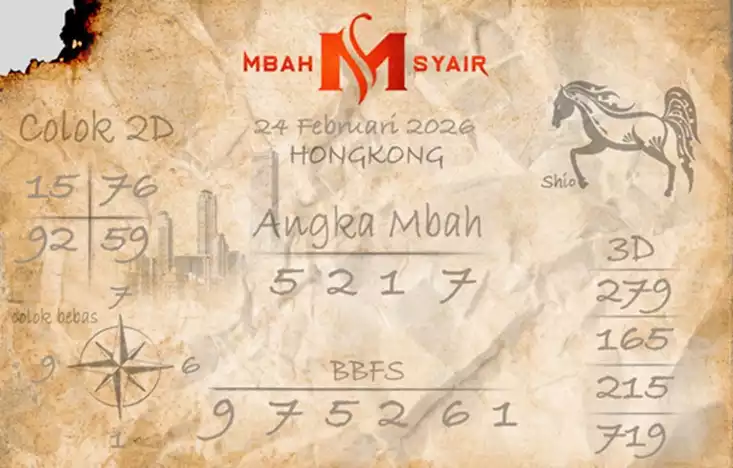 MBAH M SYAIR
24 Februari 2026
HONGKONG
Colok 2D
15 76
92 59
Shio
Angka Mbah
5 2 1 7
3D
279
165
215
719
7
colok bebas
9 6
1
BBFS
9 7 5 2 6 1